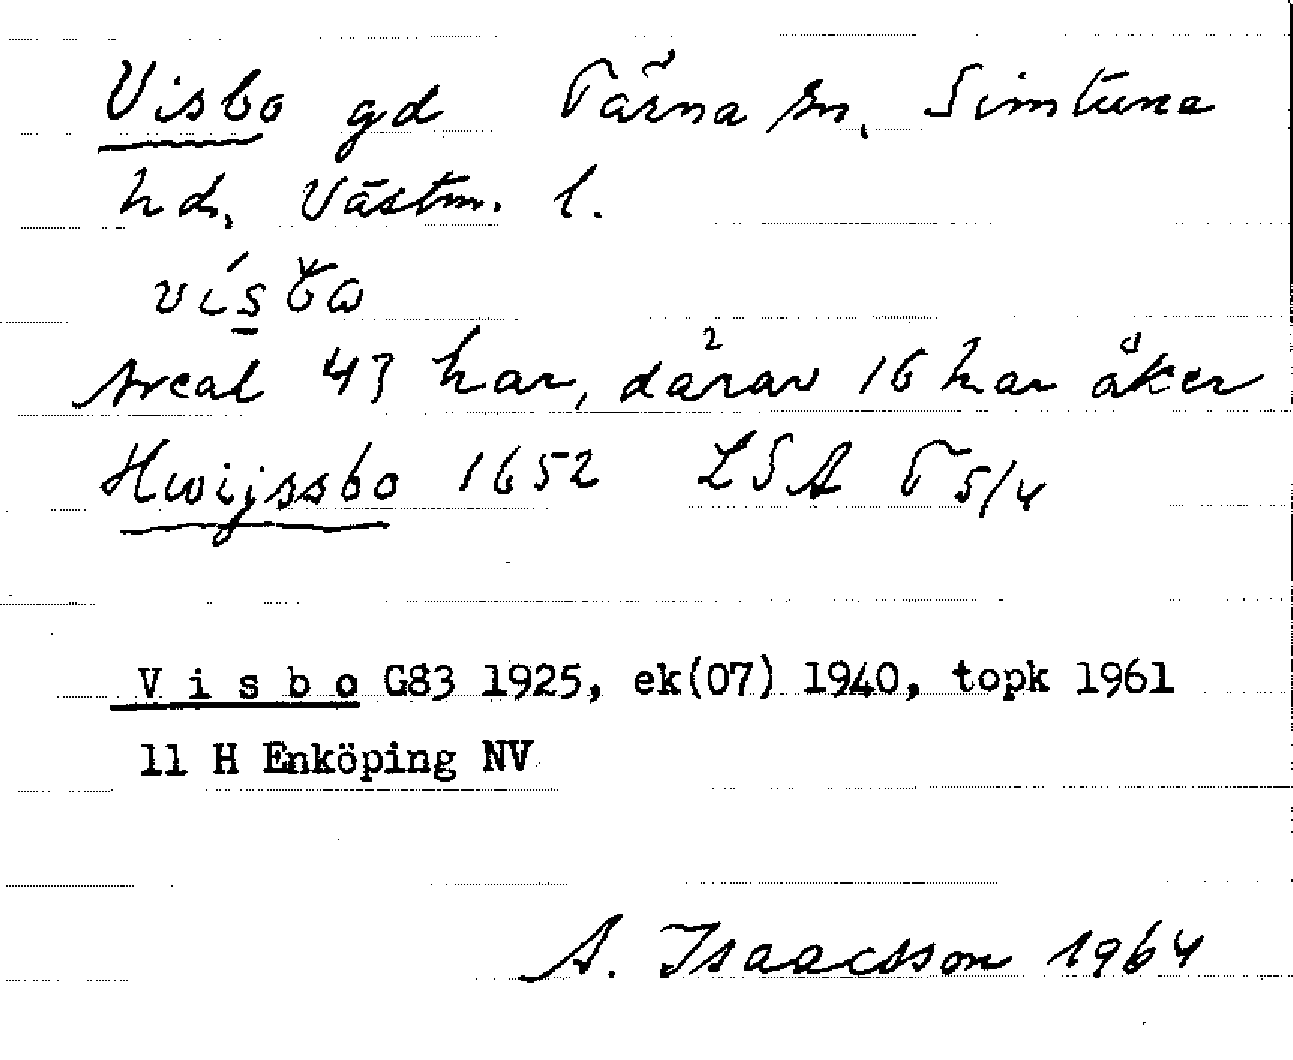 Visbo gd Tärna sn, Simtuna
hd, Västm. l.
Areal 43 har, därav 16 har åker
Hwijssbo 1652 LSA T 5/4
V i s b o G83 1925, ek(07) 1940, topk 1961
11 H Enköping NV
A. Isaacsson 1964